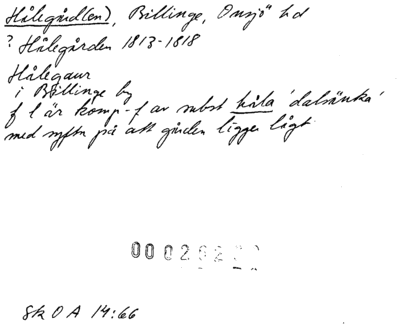 Hålegård(en), Billinge, Onsjö hd
? Hålegården 1813-1818
Hålegaur
i Billinge by
f l är komp-f av subst håla 'dalsänka'
med syftn på att gården ligger lågt.
Sk O A 14:66